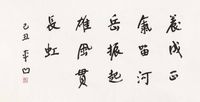 養成正
氣留河
岳振起
雄風貫
長虹
己丑 平凹